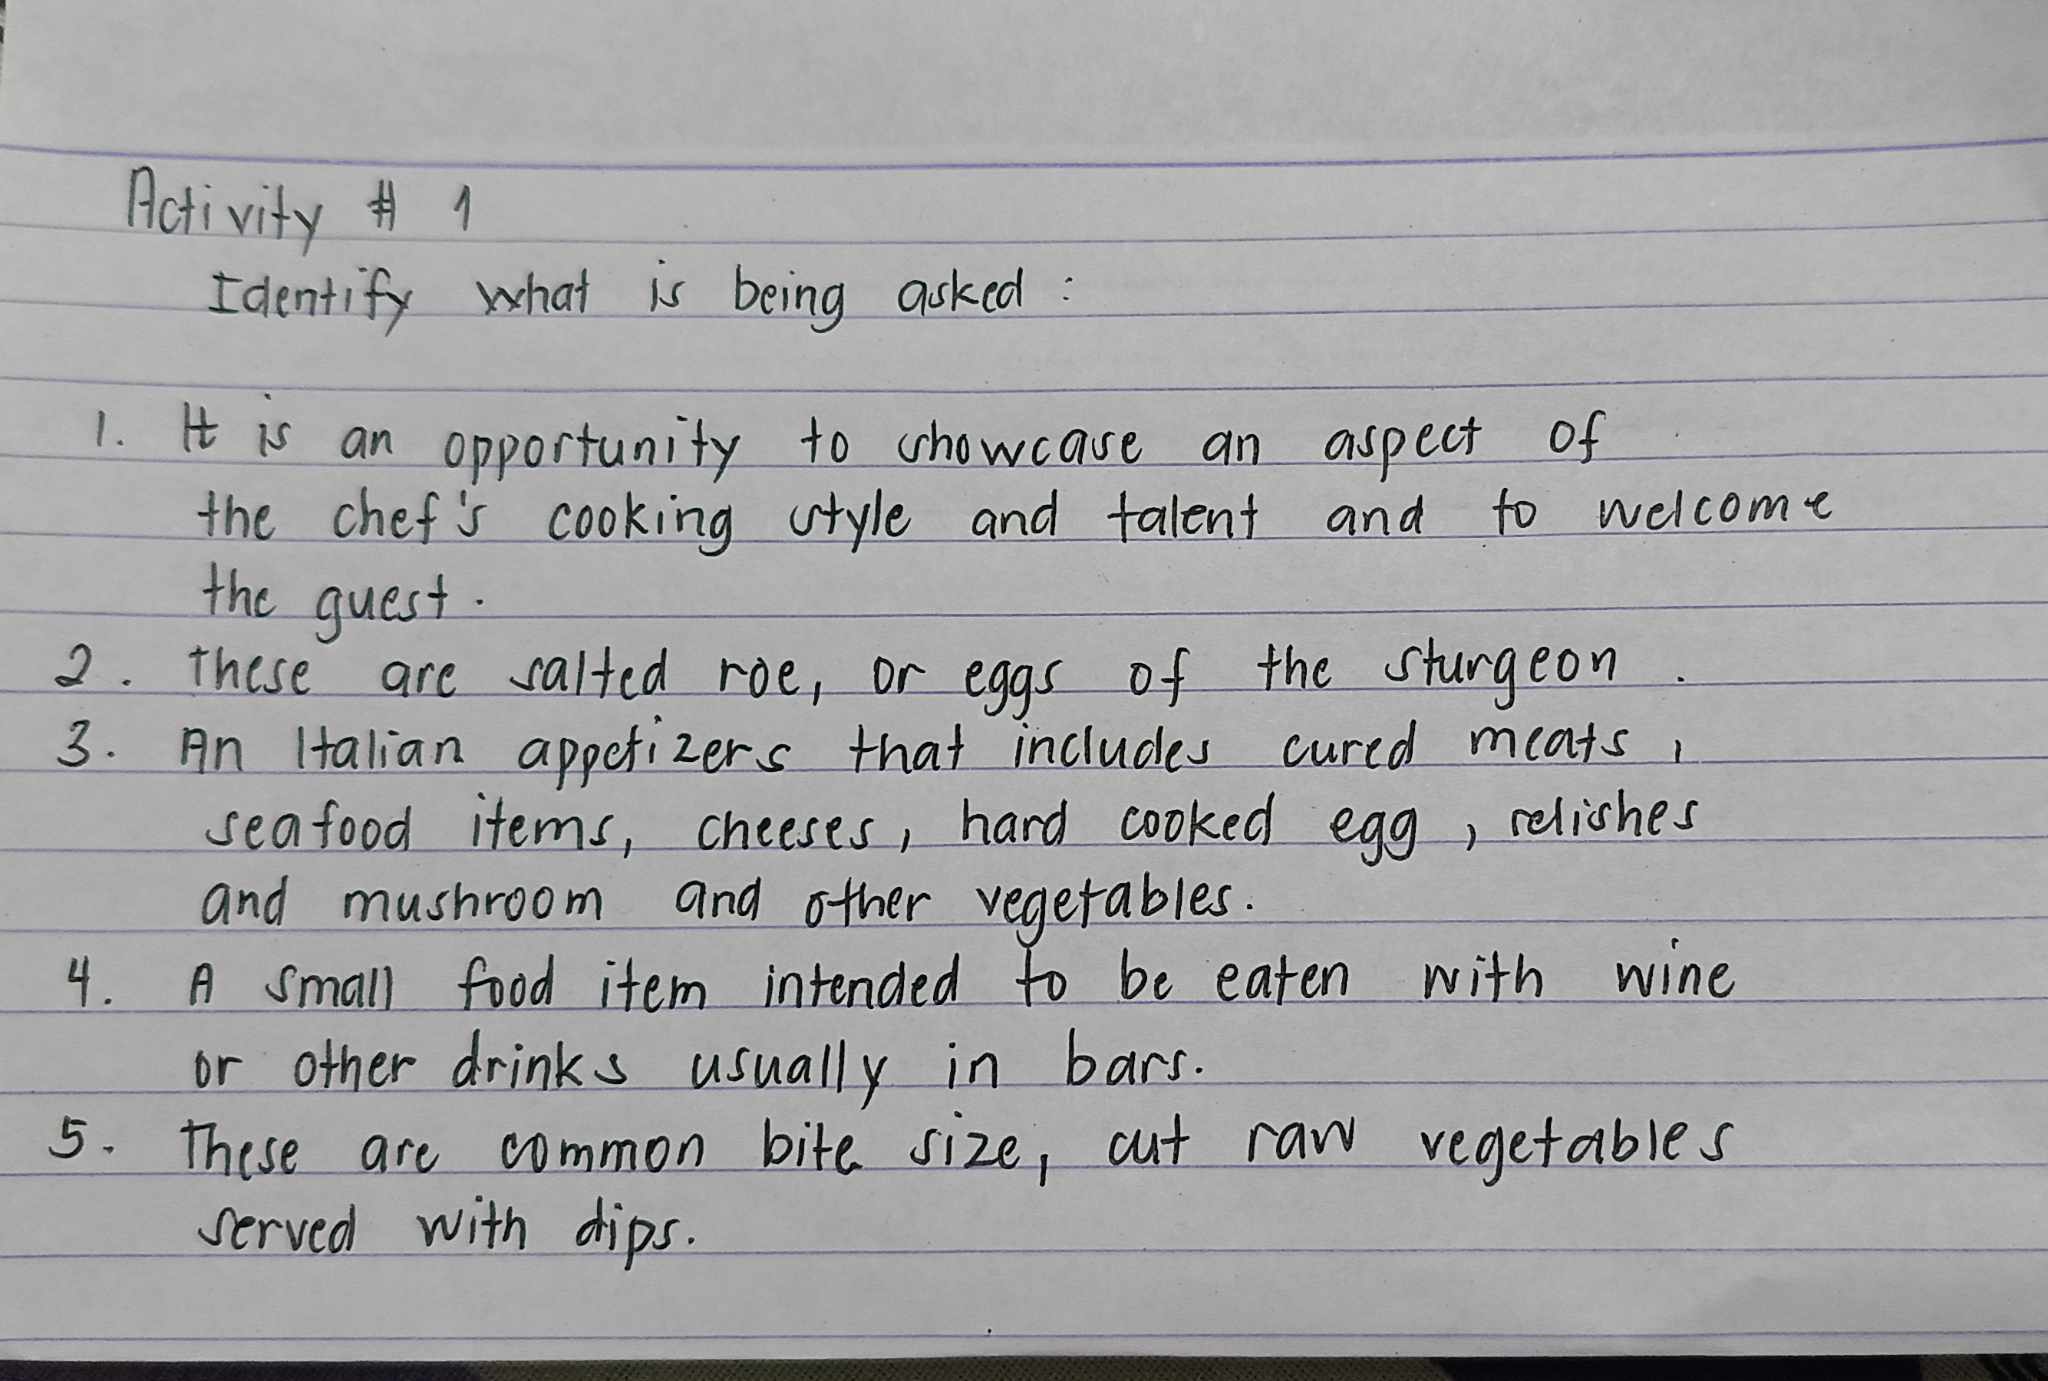 Activity # 1
Identify what is being asked :
1. It is an opportunity to showcase an aspect of
the chef's cooking style and talent and to welcome
the guest.
2. These are salted roe, or eggs of the sturgeon.
3. An Italian appetizers that includes cured meats,
seafood items, cheeses, hard cooked egg, relishes
and mushroom and other vegetables.
4. A small food item intended to be eaten with wine
or other drinks usually in bars.
5. These are common bite size, cut raw vegetables
served with dips.